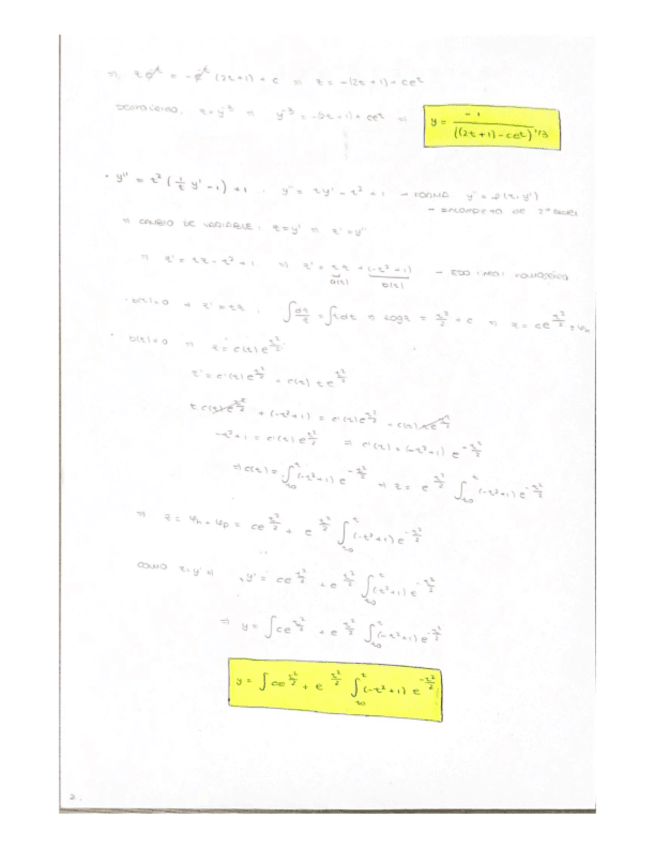 ⇒ z e^{-t} = -e^{-t} (2t+1) + c ⇒ z = -(2t+1) + ce^t
z = y^{-3} ⇒ y^{-3} = -(2t+1) + ce^t ⇒ y = -1 / ((2t+1) - ce^t)^{1/3}
· y'' = t² (1/t y' - 1) + 1 . y'' = ty' - t² + 1 → FORMA y'' = f(t, y')
- INCOMPLETA DE 2º
⇒ CAMBIO DE VARIABLE: z = y' ⇒ z' = y''
⇒ z' = tz - t² + 1 ⇒ z' = tz + (-t² + 1) - EDO LINEAL
a(t) b(t)
· b(t) = 0 ⇒ z' = tz ; ∫ dz/z = ∫ t dt ⇒ log z = t²/2 + c ⇒ z = ce^{t²/2} = φh
· b(t) ≠ 0 ⇒ z = c(t) e^{t²/2}
z' = c'(t) e^{t²/2} + c(t) t e^{t²/2}
t c(t) e^{t²/2} + (-t²+1) = c'(t) e^{t²/2} + c(t) t e^{t²/2}
-t²+1 = c'(t) e^{t²/2} = c'(t) = (-t²+1) e^{-t²/2}
⇒ c(t) = ∫_{t0}^{t} (-t²+1) e^{-t²/2} ⇒ z = e^{t²/2} ∫_{t0}^{t} (-t²+1) e^{-t²/2}
⇒ z = φh + φp = ce^{t²/2} + e^{t²/2} ∫_{t0}^{t} (-t²+1) e^{-t²/2}
COMO z = y' ⇒ y' = ce^{t²/2} + e^{t²/2} ∫_{t0}^{t} (-t²+1) e^{-t²/2}
⇒ y = ∫ ce^{t²/2} + e^{t²/2} ∫_{t0}^{t} (-t²+1) e^{-t²/2}
y = ∫ ce^{t²/2} + e^{t²/2} ∫_{t0}^{t} (-t²+1) e^{-t²/2}
2.